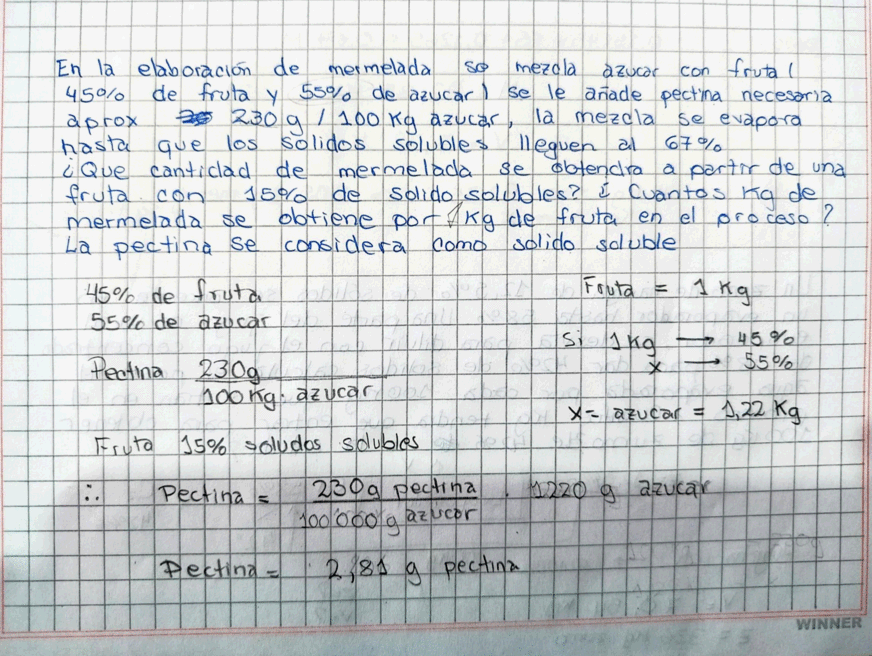 En la elaboración de mermelada se mezcla azucar con fruta (
45% de fruta y 55% de azucar) se le añade pectina necesaria
aprox 230 g / 100 Kg azucar, la mezcla se evapora
hasta que los solidos solubles lleguen al 67%
¿Que cantidad de mermelada se obtendra a partir de una
fruta con 15% de solido solubles? ¿ Cuantos Kg de
mermelada se obtiene por 1 Kg de fruta en el proceso?
La pectina se considera como solido soluble
45% de fruta
55% de azucar
Pectina 230g
100 Kg. azucar
Fruta 15% soludos solubles
Fruta = 1 Kg
Si 1 Kg → 45%
x → 55%
x = azucar = 1,22 Kg
∴ Pectina = 230g pectina . 1220 g azucar
100'000 g azucar
Pectina = 2,81 g pectina
WINNER